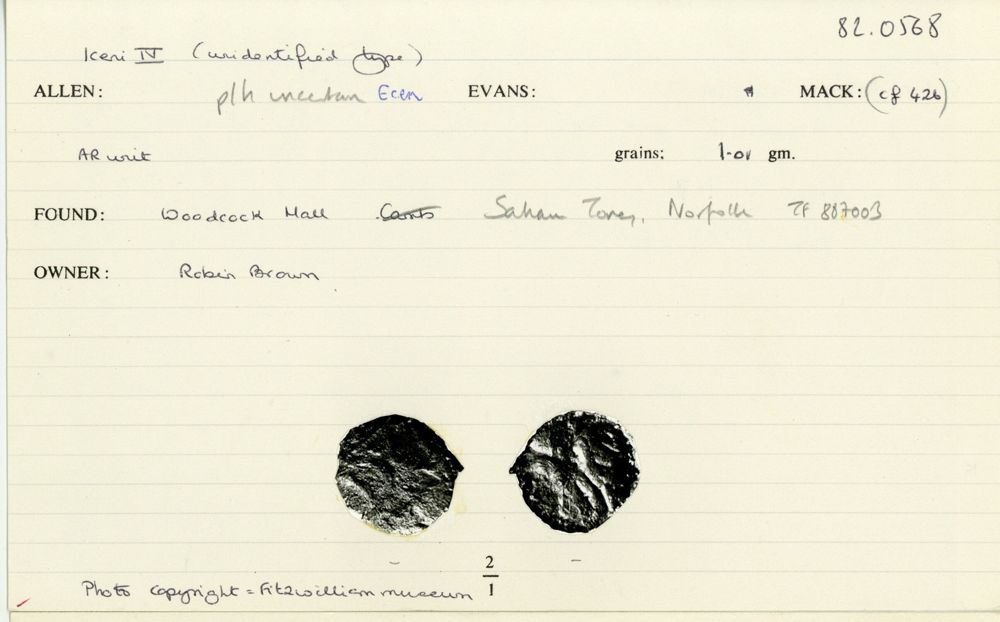 82.0568
Iceni IV (unidentified type)
ALLEN: p/h uncertain Ecen EVANS: MACK: (cf 426)
AR unit grains: 1.01 gm.
FOUND: Woodcock Hall Cants Saham Toney, Norfolk TF 887003
OWNER: Robin Brown
2
1
Photo copyright = Fitzwilliam museum